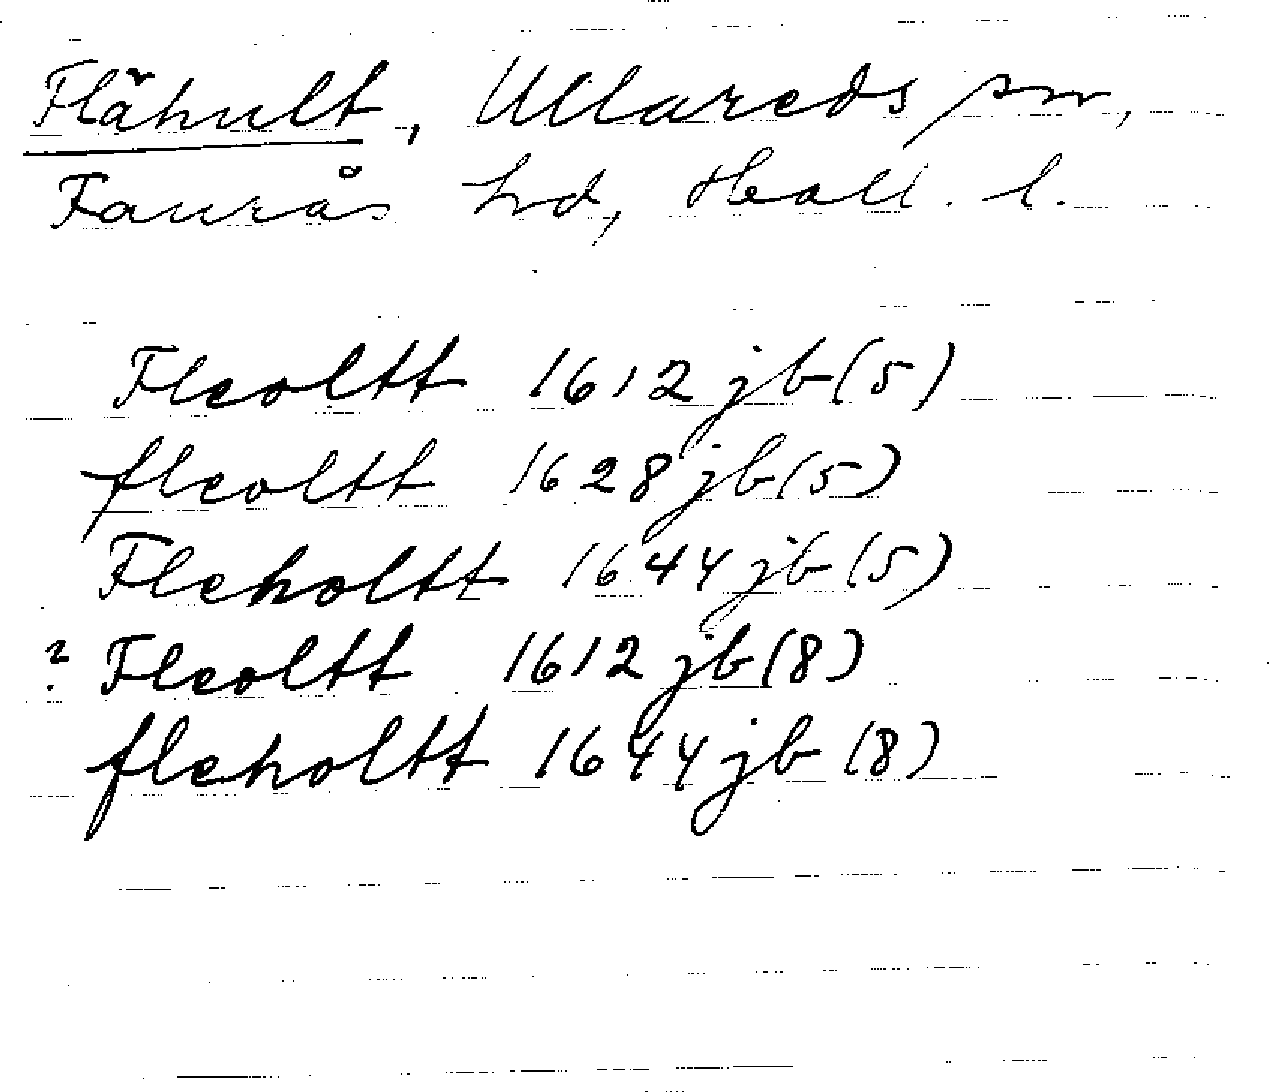 Flähult, Ullareds sn,
Faurås hd, Hall. l.
Fleoltt 1612 jb (5)
fleoltt 1628 jb (5)
Fleholtt 1644 jb (5)
? Fleoltt 1612 jb (8)
fleholtt 1644 jb (8)